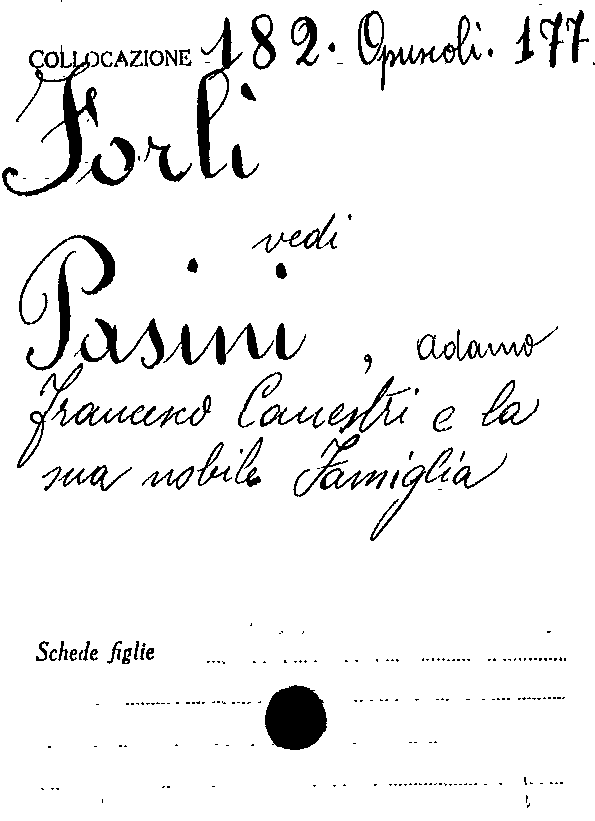 COLLOCAZIONE 182. Opuscoli. 177.
Forlì
vedi
Pasini, Adamo
Francesco Canestri e la
sua nobile Famiglia
Schede figlie